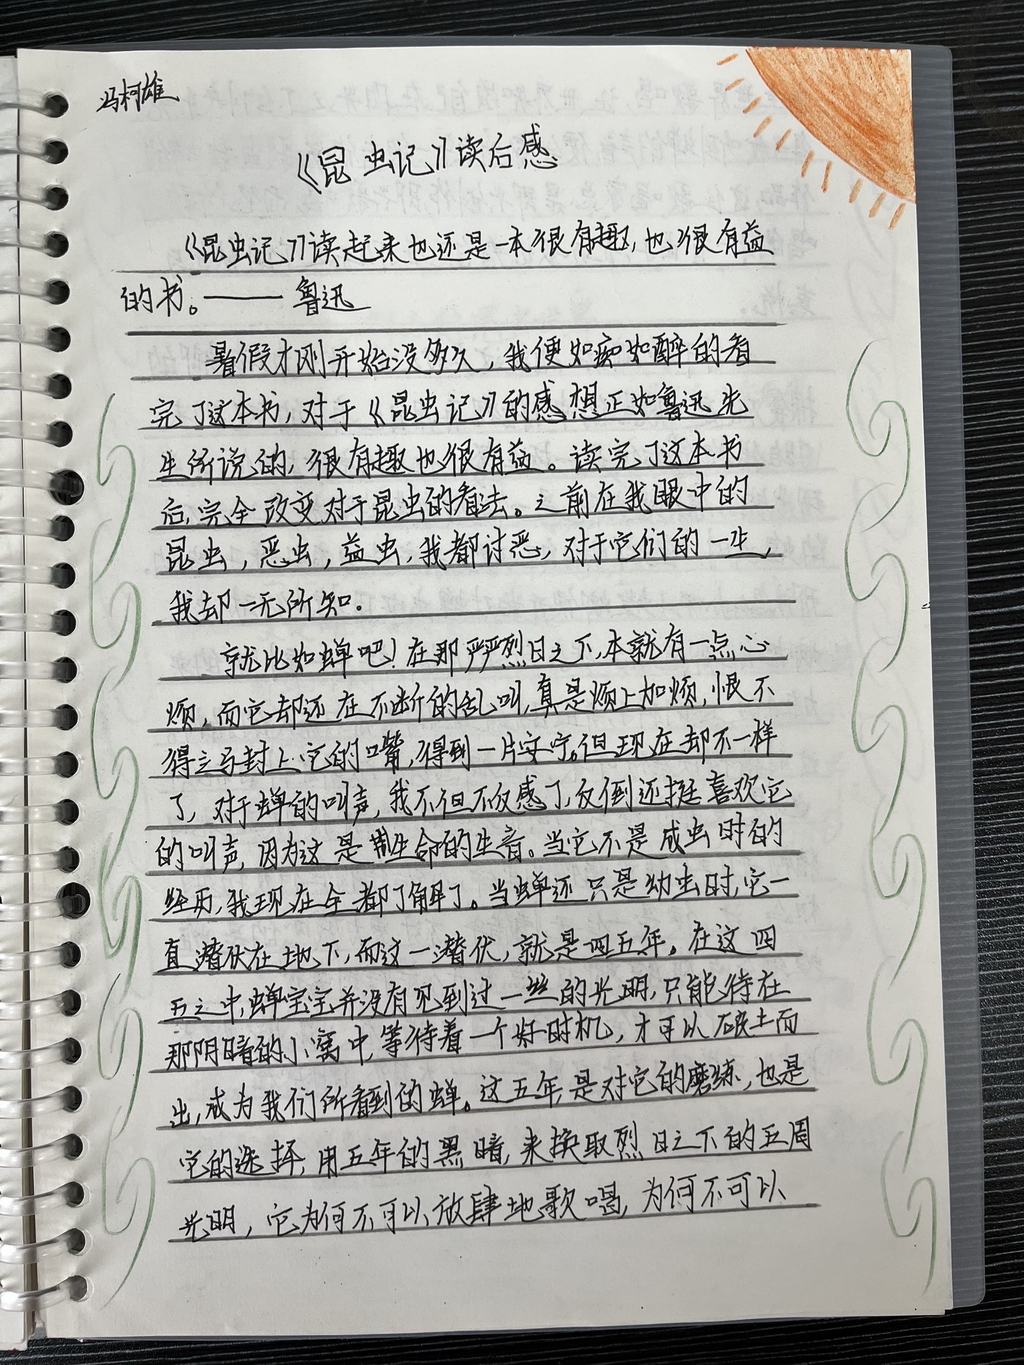 冯柯雄
《昆虫记》读后感
《昆虫记》读起来也还是一本很有趣，也很有益
的书。——鲁迅
暑假才刚开始没多久，我便如痴如醉的看
完了这本书，对于《昆虫记》的感想正如鲁迅先
生所说的，很有趣也很有益。读完了这本书
后，完全改变对于昆虫的看法。之前在我眼中的
昆虫，恶虫，益虫，我都讨恶，对于它们的一生，
我却一无所知.
就比如蝉吧！在那严严烈日之下，本就有一点心
烦，而它却还在不断的乱叫，真是烦上加烦，恨不
得立马封上它的嘴，得到一片安宁。但现在却不一样
了，对于蝉的叫声，我不但不反感了，反倒还挺喜欢它
的叫声，因为这是生命的生音。当它不是成虫时的
经历，我现在全都了解了。当蝉还只是幼虫时，它一
直潜伏在地下，而这一潜伏，就是四五年。在这四
五之中，蝉宝宝并没有见到过一丝的光明，只能待在
那阴暗的小窝中，等待着一个好时机，才可以破土而
出，成为我们所看到的蝉。这五年是对它的磨练，也是
它的选择，用五年的黑暗，来换取烈日之下的五周
光明，它为何不可以放肆地歌唱，为何不可以